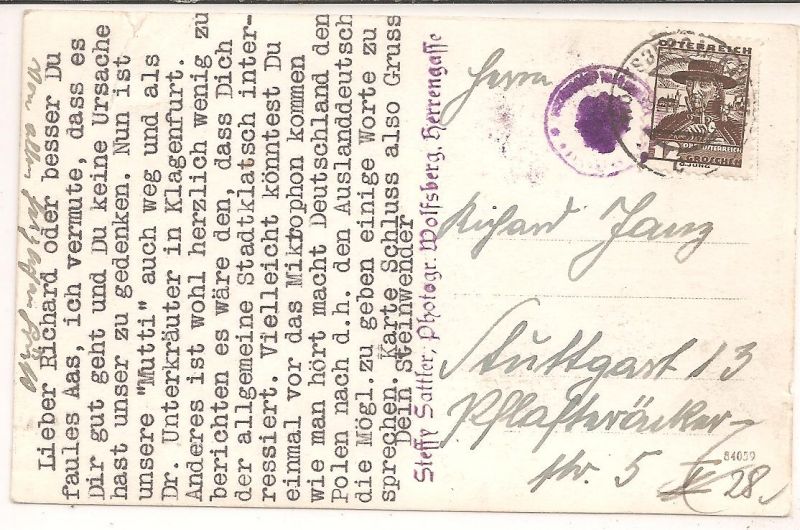 Lieber Richard oder besser Du
faules Aas, ich vermute, dass es
Dir gut geht und Du keine Ursache
hast unser zu gedenken. Nun ist
unsere "Mutti" auch weg und als
Dr. Unterkräuter in Klagenfurt.
Anderes ist wohl herzlich wenig zu
berichten es wäre den, dass Dich
der allgemeine Stadtklatsch inter-
ressiert. Vielleicht könntest Du
einmal vor das Mikrophon kommen
wie man hört macht Deutschland den
Polen nach d.h. den Auslanddeutsch
die Mögl.zu geben einige Worte zu
sprechen. Karte Schluss also Gruss
Dein Steinwender
Von allen
Steffy Sattler, Photogr. Wolfsberg, Herrengasse
ÖSTERREICH
OBERÖSTERREICH
12 GROSCHEN
Herrn
Richard Janz
Stuttgart 13
Pflasteräcker-
str. 5
28
84059